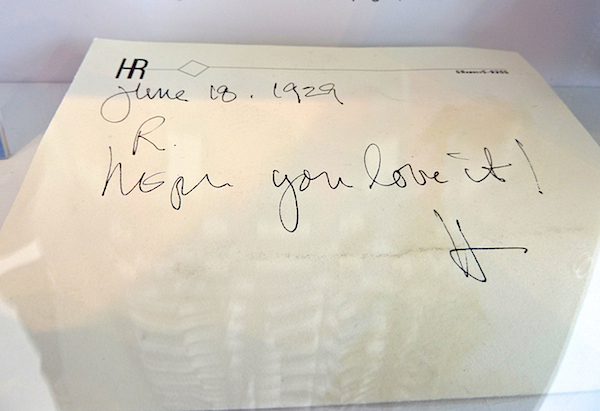 HR
June 18. 1929
R.
Hope you love it!
H